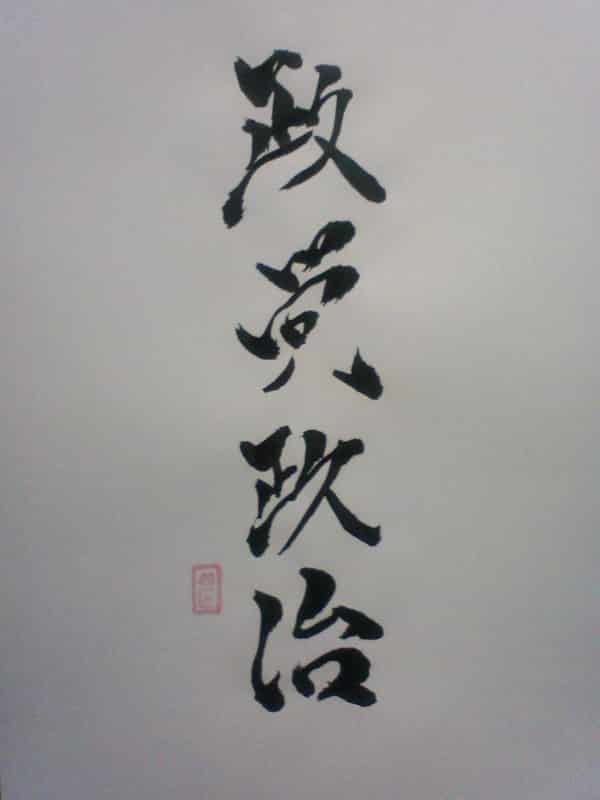 政党政治